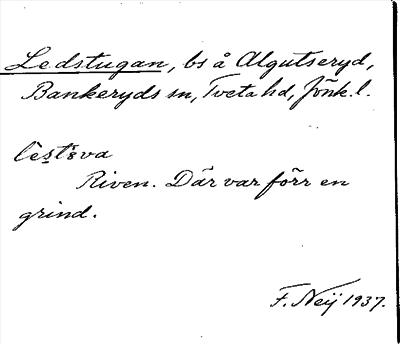 Ledstugan, bs å Algutseryd,
Bankeryds sn, Tveta hd, Jönk. l.
Riven. Där var förr en
grind.
F. Neij 1937.